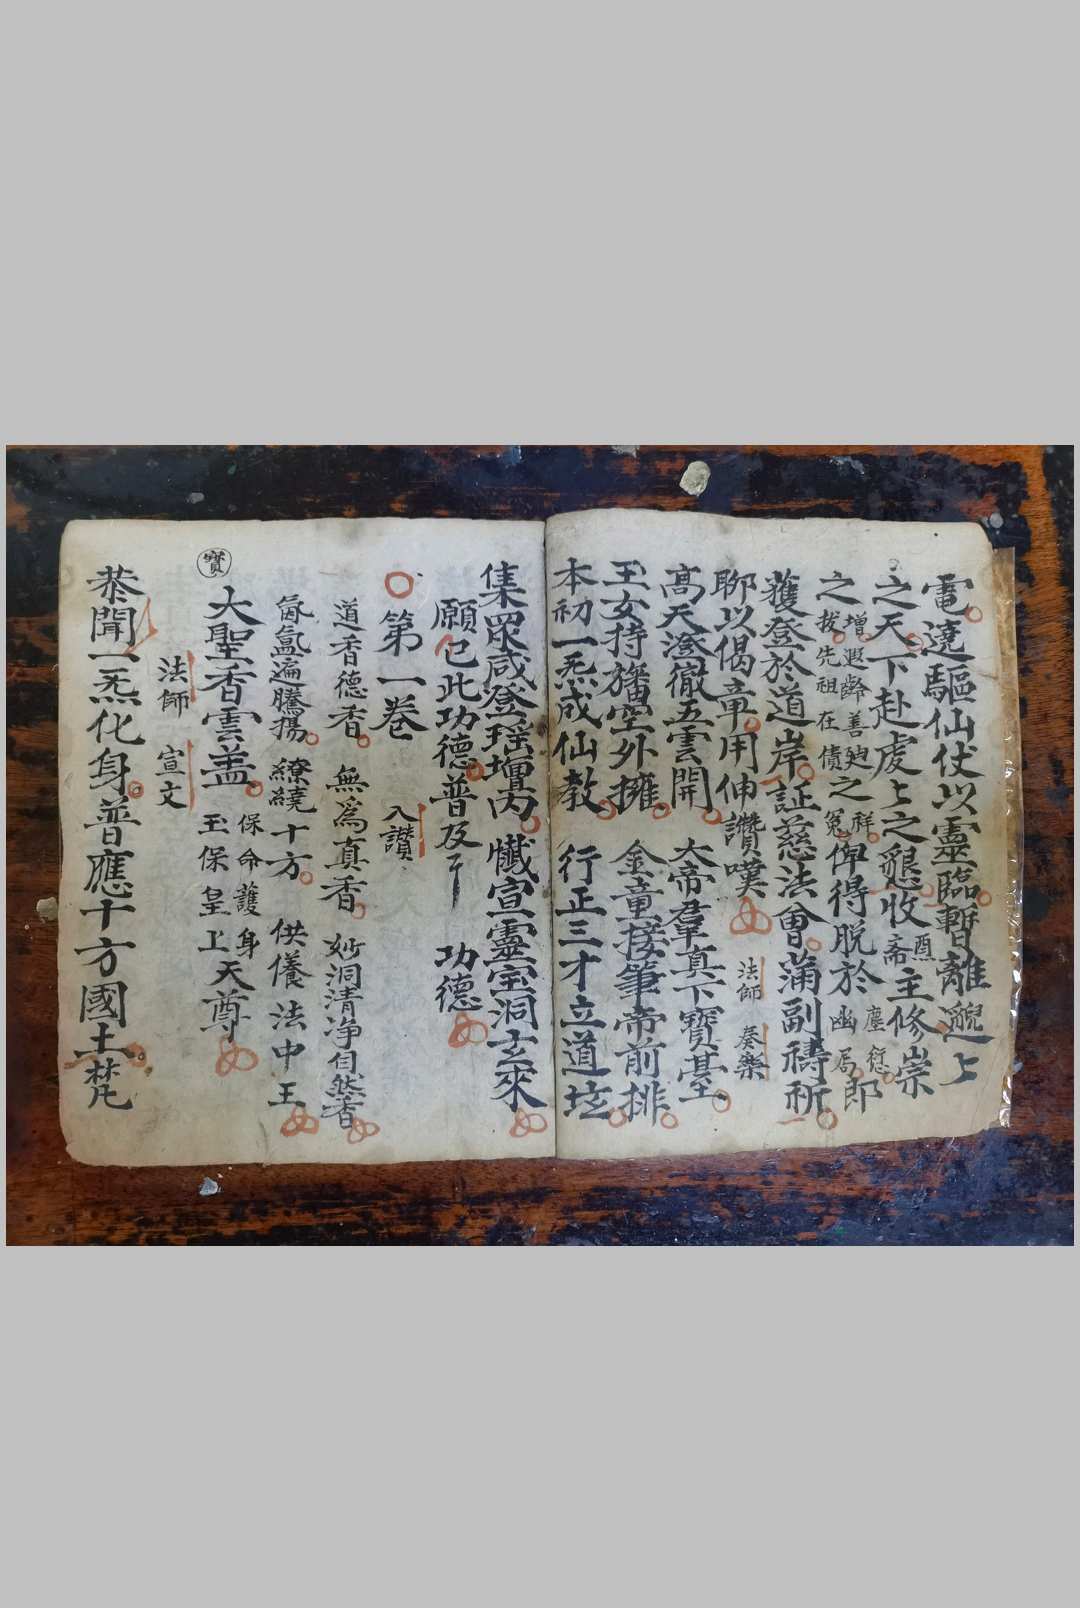 電遶驅仙仗以靈臨暫離邈上
之天下赴虔〻之懇收齋主修崇
酉
之
增遐齡善
拔先祖在債
之
祥
冤
俾得脫於
塵愆
幽局
郎
獲登於道岸証慈法會蒲副禱祈
聊以偈章用伸讚嘆
法師 奏樂
高天澄徹五雲開 大帝羣真下寶臺
玉女持旛空外擁 金童接筆帝前排
本初一炁成仙教 行正三才立道垓
集眾咸登瑤壇內 懺宣靈宝洞玄來
願已此功德普及于 功德
第一卷 入讚
道香德香 無為真香 妙洞清净自然香
氤氳遍騰揚 繚繞十方 供養法中王
寶
大聖香雲盖
保命護身
玉保皇上
天尊
法師 宣文
恭聞一炁化身普應十方國土梵